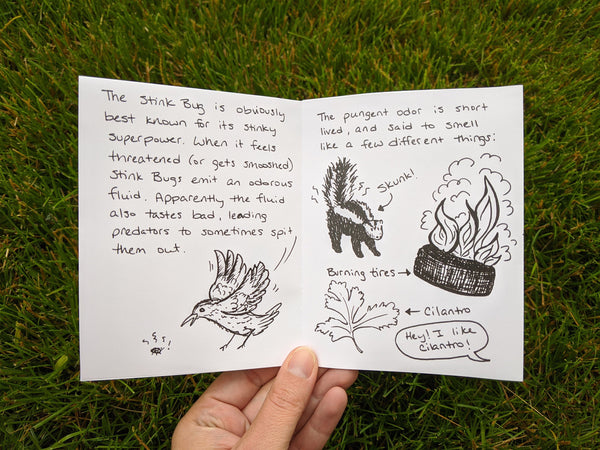 The Stink Bug is obviously
best known for its stinky
superpower. When it feels
threatened (or gets smooshed)
Stink Bugs emit an odorous
fluid. Apparently the fluid
also tastes bad, leading
predators to sometimes spit
them out.
The pungent odor is short
lived, and said to smell
like a few different things:
Skunk!
Burning tires →
← Cilantro
Hey! I like
Cilantro!